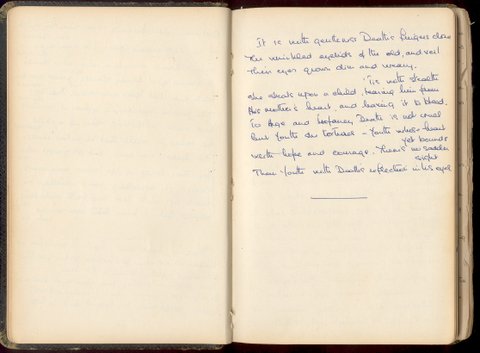 It is with gentleness Death's fingers close
The wrinkled eyelids of the old, and veil
Their eyes grown dim and weary.
'Tis with stealth
She steals upon a child, tearing him from
His mother's heart and leaving it to bleed,
To Age and Infancy Death is not cruel
but Youth she tortures - Youth whose heart
yet bounds
with hope and courage. There's no sadder
sight
Than Youth with Death's reflection in his eyes